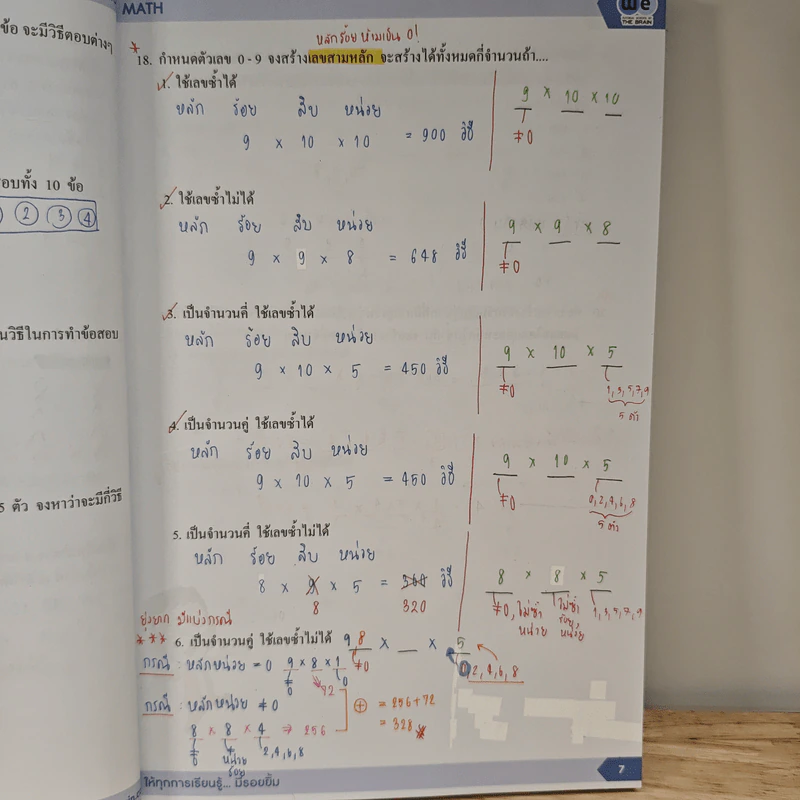 MATH
We
THE BRAIN
ข้อ จะมีวิธีตอบต่างๆ
อบทั้ง 10 ข้อ
2 3 4
นวิธีในการทำข้อสอบ
5 ตัว จงหาว่าจะมีกี่วิธี
หลักร้อยห้ามเป็น 0!
* 18. กำหนดตัวเลข 0 - 9 จงสร้างเลขสามหลัก จะสร้างได้ทั้งหมดกี่จำนวนถ้า....
1. ใช้เลขซ้ำได้
หลัก ร้อย สิบ หน่วย
9 × 10 × 10 = 900 วิธี
9 × 10 × 10
≠0
2. ใช้เลขซ้ำไม่ได้
หลัก ร้อย สิบ หน่วย
9 × 9 × 8 = 648 วิธี
9 × 9 × 8
≠0
3. เป็นจำนวนคี่ ใช้เลขซ้ำได้
หลัก ร้อย สิบ หน่วย
9 × 10 × 5 = 450 วิธี
9 × 10 × 5
≠0 1,3,5,7,9
5 ตัว
4. เป็นจำนวนคู่ ใช้เลขซ้ำได้
หลัก ร้อย สิบ หน่วย
9 × 10 × 5 = 450 วิธี
9 × 10 × 5
≠0 0,2,4,6,8
5 ตัว
5. เป็นจำนวนคี่ ใช้เลขซ้ำไม่ได้
หลัก ร้อย สิบ หน่วย
8 × 9 × 5 = 360 วิธี
8 320
8 × 8 × 5
≠0, ไม่ซ้ำ ไม่ซ้ำ 1,3,5,7,9
หน่วย ร้อย, หน่วย
ยุ่งยาก มีแบ่งกรณี
*** 6. เป็นจำนวนคู่ ใช้เลขซ้ำไม่ได้ 9 8 × __ × 5
≠0 0,2,4,6,8
กรณี : หลักหน่วย = 0 9 × 8 × 1
≠0 72 0
กรณี : หลักหน่วย ≠ 0
8 × 8 × 4 ⇒ 256
≠0 หน่วย 2,4,6,8
ร้อย
+ = 256+72
= 328
ให้ทุกการเรียนรู้... มีรอยยิ้ม
7